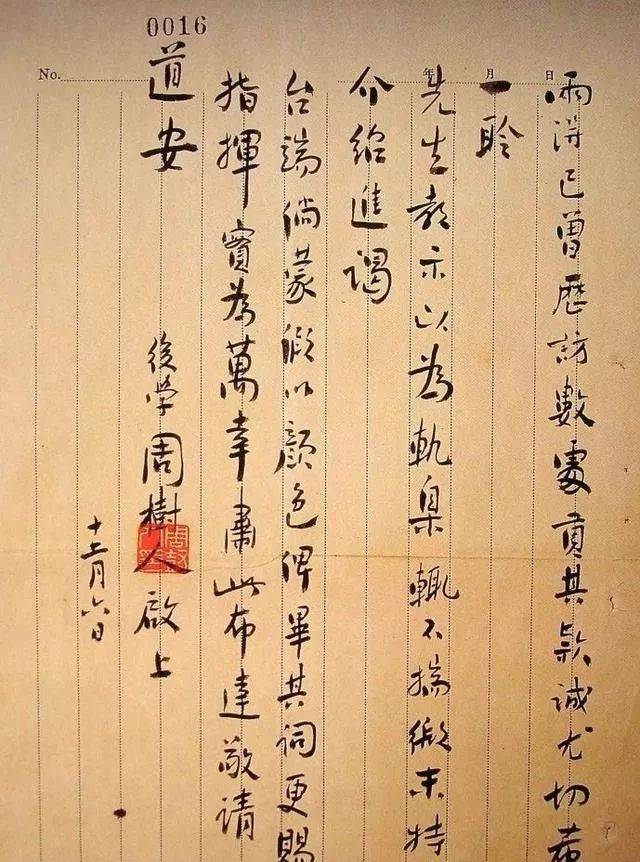 0016
No.
年 月 日
得已曾歷訪數處貢其款誠尤切希
一聆
先生教示以為軌臬輒不揣微末特
介紹進謁
台端倘蒙假以顏色俾畢其詞更賜
指揮實為萬幸肅此布達敬請
道安
後学周樹人啟上
十二月六日